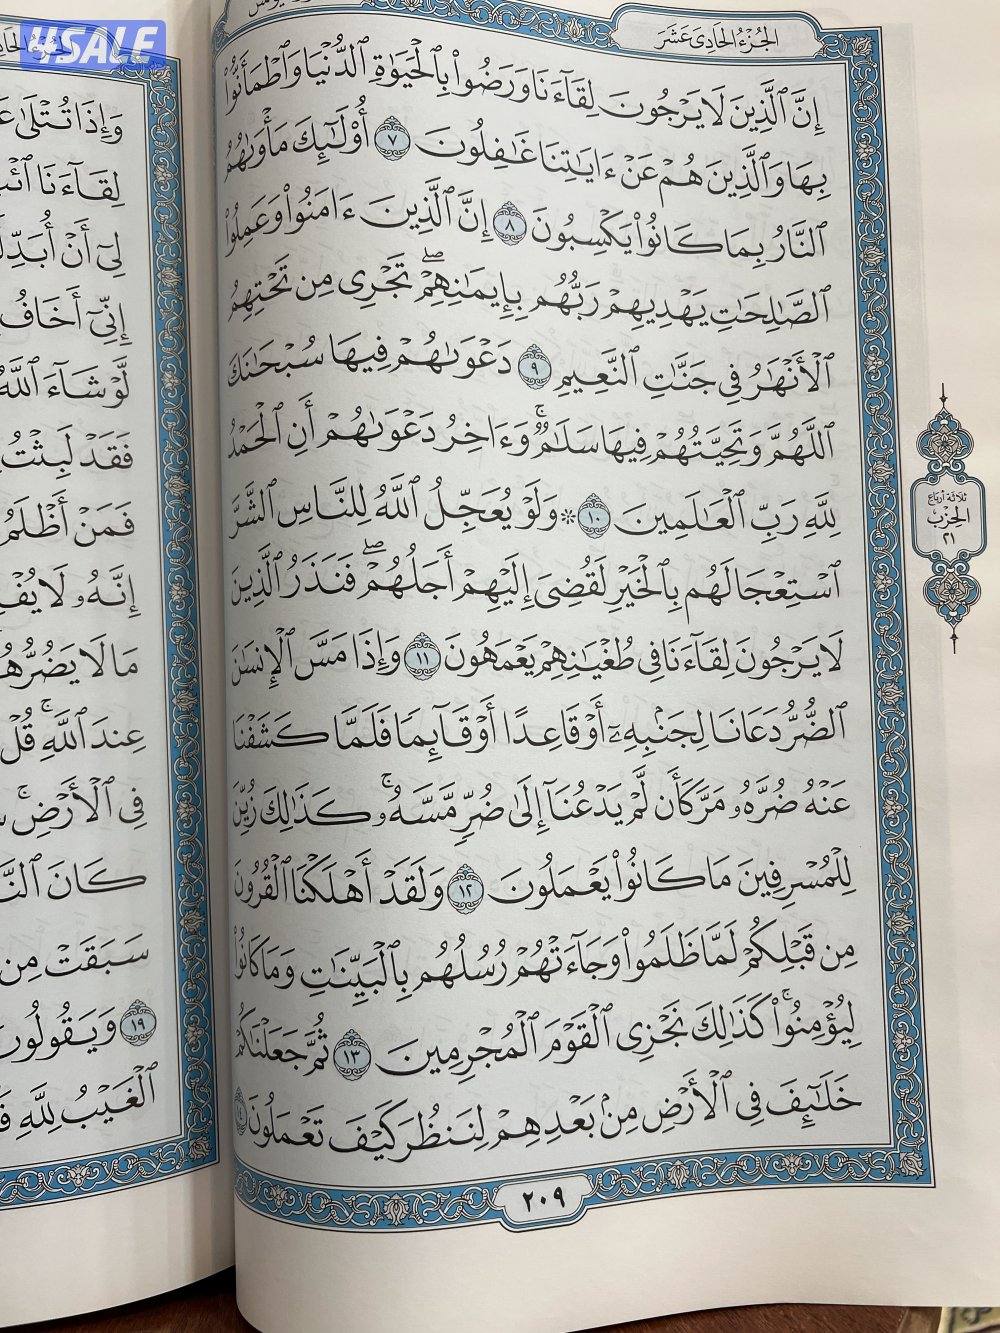 4SALE
الجزء الحادى عشر
إِنَّ ٱلَّذِينَ لَا يَرْجُونَ لِقَآءَنَا وَرَضُوا۟ بِٱلْحَيَوٰةِ ٱلدُّنْيَا وَٱطْمَأَنُّوا۟
بِهَا وَٱلَّذِينَ هُمْ عَنْ ءَايَٰتِنَا غَٰفِلُونَ ٧ أُو۟لَٰٓئِكَ مَأْوَىٰهُمُ
ٱلنَّارُ بِمَا كَانُوا۟ يَكْسِبُونَ ٨ إِنَّ ٱلَّذِينَ ءَامَنُوا۟ وَعَمِلُوا۟
ٱلصَّٰلِحَٰتِ يَهْدِيهِمْ رَبُّهُم بِإِيمَٰنِهِمْ ۖ تَجْرِى مِن تَحْتِهِمُ
ٱلْأَنْهَٰرُ فِى جَنَّٰتِ ٱلنَّعِيمِ ٩ دَعْوَىٰهُمْ فِيهَا سُبْحَٰنَكَ
ٱللَّهُمَّ وَتَحِيَّتُهُمْ فِيهَا سَلَٰمٌ ۚ وَءَاخِرُ دَعْوَىٰهُمْ أَنِ ٱلْحَمْدُ
لِلَّهِ رَبِّ ٱلْعَٰلَمِينَ ١٠ * وَلَوْ يُعَجِّلُ ٱللَّهُ لِلنَّاسِ ٱلشَّرَّ
ٱسْتِعْجَالَهُم بِٱلْخَيْرِ لَقُضِىَ إِلَيْهِمْ أَجَلُهُمْ ۖ فَنَذَرُ ٱلَّذِينَ
لَا يَرْجُونَ لِقَآءَنَا فِى طُغْيَٰنِهِمْ يَعْمَهُونَ ١١ وَإِذَا مَسَّ ٱلْإِنسَٰنَ
ٱلضُّرُّ دَعَانَا لِجَنۢبِهِۦٓ أَوْ قَاعِدًا أَوْ قَآئِمًا فَلَمَّا كَشَفْنَا
عَنْهُ ضُرَّهُۥ مَرَّ كَأَن لَّمْ يَدْعُنَآ إِلَىٰ ضُرٍّ مَّسَّهُۥ ۚ كَذَٰلِكَ زُيِّنَ
لِلْمُسْرِفِينَ مَا كَانُوا۟ يَعْمَلُونَ ١٢ وَلَقَدْ أَهْلَكْنَا ٱلْقُرُونَ
مِن قَبْلِكُمْ لَمَّا ظَلَمُوا۟ وَجَآءَتْهُمْ رُسُلُهُم بِٱلْبَيِّنَٰتِ وَمَا كَانُوا۟
لِيُؤْمِنُوا۟ ۚ كَذَٰلِكَ نَجْزِى ٱلْقَوْمَ ٱلْمُجْرِمِينَ ١٣ ثُمَّ جَعَلْنَٰكُمْ
خَلَٰٓئِفَ فِى ٱلْأَرْضِ مِنۢ بَعْدِهِمْ لِنَنظُرَ كَيْفَ تَعْمَلُونَ ١٤
٢٠٩
ثلاثة أرباع
الحزب
٢١
وَإِذَا تُتْلَىٰ
لِقَآءَنَا
لِىٓ أَنْ
إِنِّىٓ أَخَافُ
لَّوْ شَآءَ ٱللَّهُ
فَقَدْ لَبِثْتُ
فَمَنْ أَظْلَمُ
إِنَّهُۥ لَا
مَا لَا يَضُرُّهُ
عِندَ ٱللَّهِ ۚ قُلْ
فِى ٱلْأَرْضِ ۚ
كَانَ
سَبَقَتْ مِن
١٩ وَيَقُولُونَ
ٱلْغَيْبُ لِلَّهِ